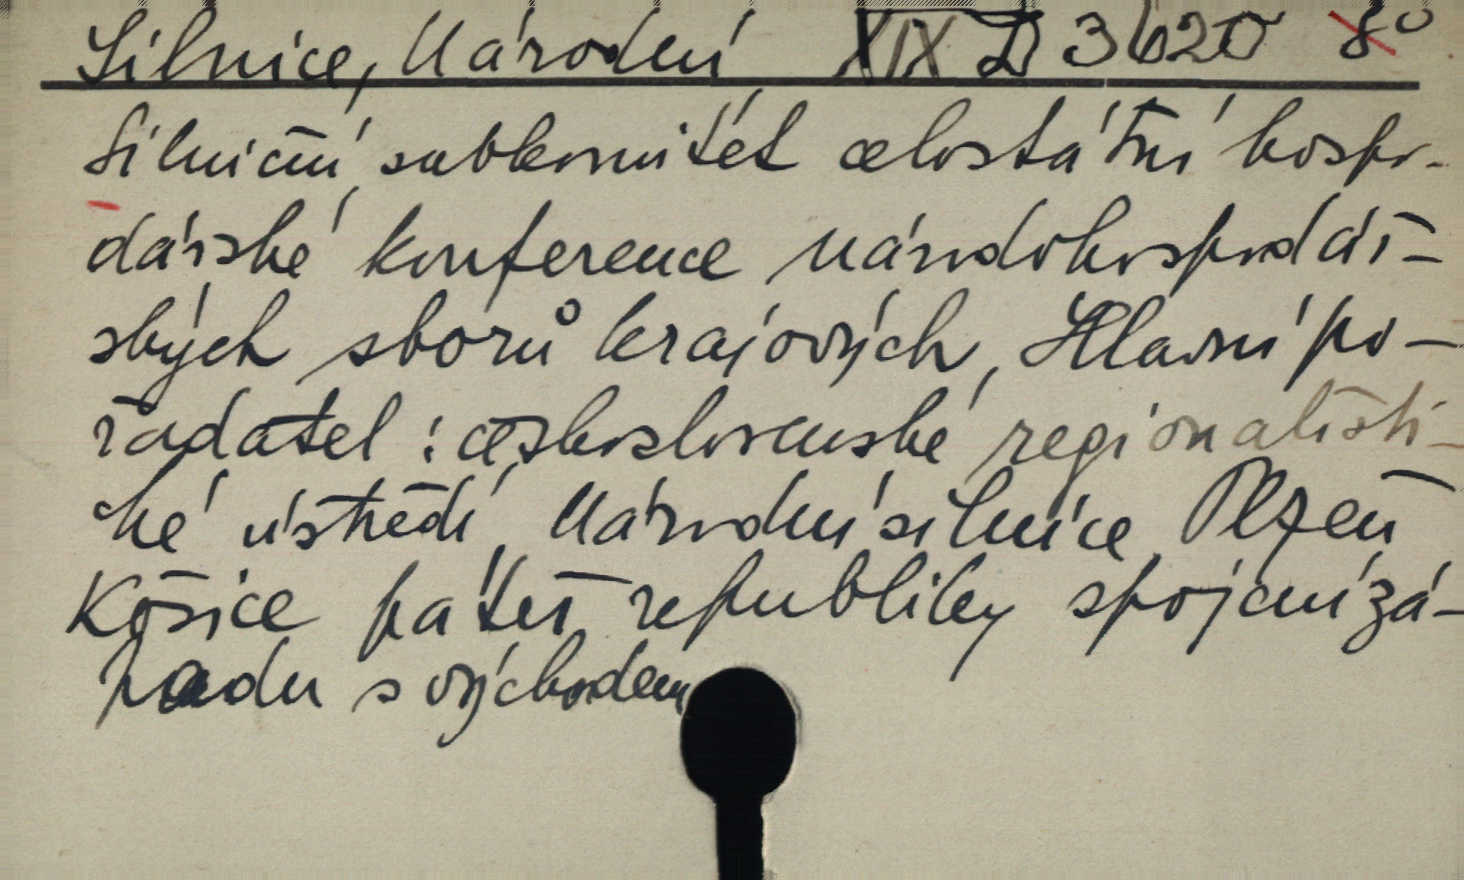 Silnice, Národní XIX D 3620 8°
Silniční subkomitét celostátní hospo-
dářské konference národohospodář-
ských sborů krajových, Hlavní po-
řadatel: československé regionalisti-
cké ústředí, Národní silnice Plzeň
Košice páteř republiky spojení zá-
padu s východem